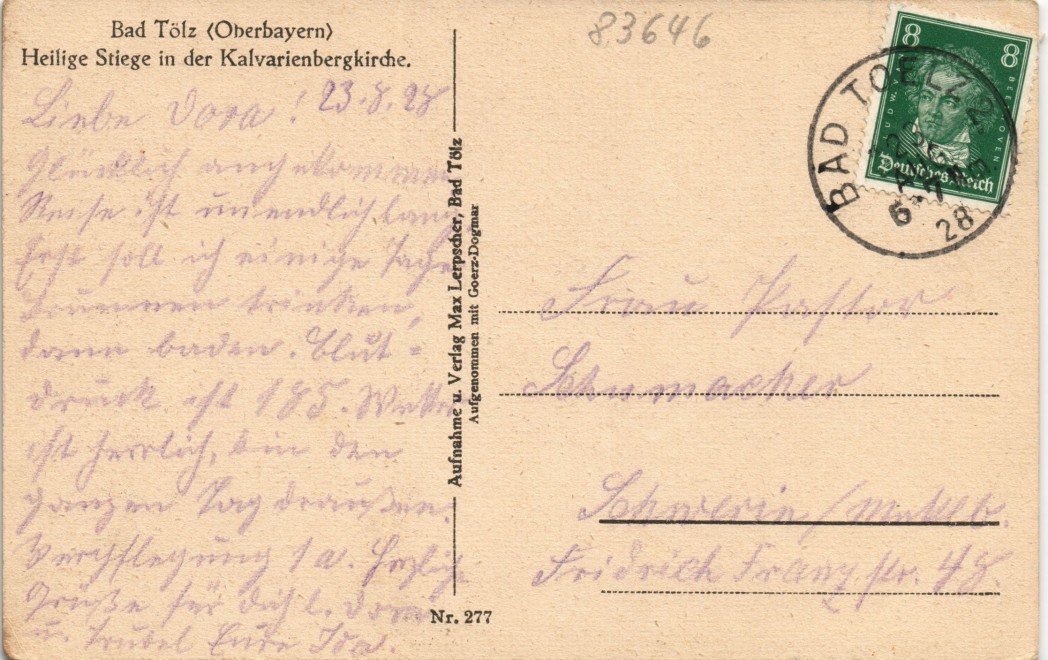 Bad Tölz (Oberbayern)
Heilige Stiege in der Kalvarienbergkirche.
Liebe Dora! 23.8.28
Glücklich angekommen
Reise ist unendlich lang
Erst soll ich einige Tage
Brunnen trinken,
dann baden. Blut=
druck ist 185. Wetter
ist herrlich, bin den
ganzen Tag draußen.
Verpflegung 1a. Herzliche
Grüße für Dich l. Dora
u. Trudel Eure Ida.
Aufnahme u. Verlag Max Lerpscher, Bad Tölz
Aufgenommen mit Goerz-Dogmar
Nr. 277
83646
8 8
LUDW. V. BEETHOVEN
Deutsches Reich
BAD TOELZ 2
6-7
28
Frau Pastor
Schumacher
Schwerin / Meklb.
Fridrich Franz str. 48.